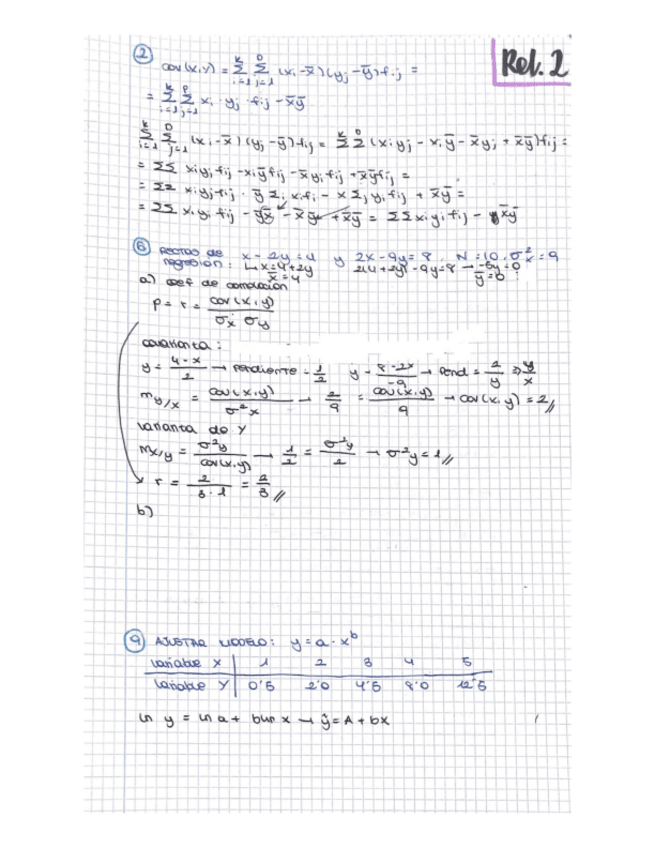 Rel. 2
② cov(x,y) = Σ Σ (xi - x̄)(yj - ȳ) fij =
= Σ Σ xi · yj · fij - x̄ȳ
Σ Σ (xi - x̄)(yj - ȳ) fij = Σ Σ (xiyj - xiȳ - x̄yj + x̄ȳ) fij =
= ΣΣ xiyj fij - xiȳ fij - x̄yj fij + x̄ȳ fij =
= ΣΣ xiyj fij · ȳ Σi xi fi - x Σj yj fj + x̄ȳ =
= ΣΣ xiyi fij - ȳx̄ - x̄ȳ + x̄ȳ = ΣΣ xiyi fij - x̄ȳ
⑥ RECTAS DE regresión : x - 2y = 4 y 2x - 9y = 8 . N = 10, σ²x = 9
↳ x = 4 + 2y 2(4 + 2y) - 9y = 8 → -5y = 0
x̄ = 4 ȳ = 0
a) coef de correlación
ρ = r = cov(x,y) / σx σy
covarianza :
y = 4 - x / 2 → pendiente = 1/2 y = 8 - 2x / -9 → pend = 2/9 ⇒ y/x
m y/x = cov(x,y) / σ²x → 2/9 = cov(x,y) / 9 → cov(x,y) = 2 //
varianza de Y
m x/y = σ²y / cov(x,y) → 1/2 = σ²y / 2 → σ²y = 1 //
r = 2 / 3·1 = 2/3 //
b)
⑨ AJUSTAR MODELO: y = a · x^b
Variable X | 1 2 3 4 5
Variable Y | 0'5 2'0 4'5 8'0 12'5
ln y = ln a + b ln x → ŷ = A + bx